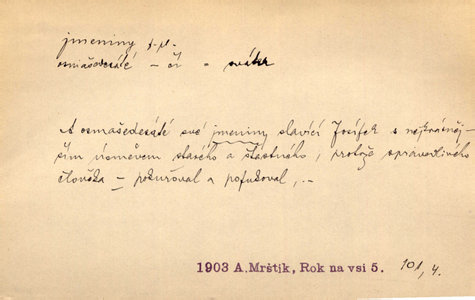 jmeniny f. pl.
osmašedesáté – čí – svátek
A osmašedesáté své jmeniny slavící Josífek s nejkrásněj-
ším úsměvem starého a šťastného, protože spravedlivého
člověka – pokuřoval a pofukoval, ..
1903 A. Mrštík, Rok na vsi 5. 101, 4.